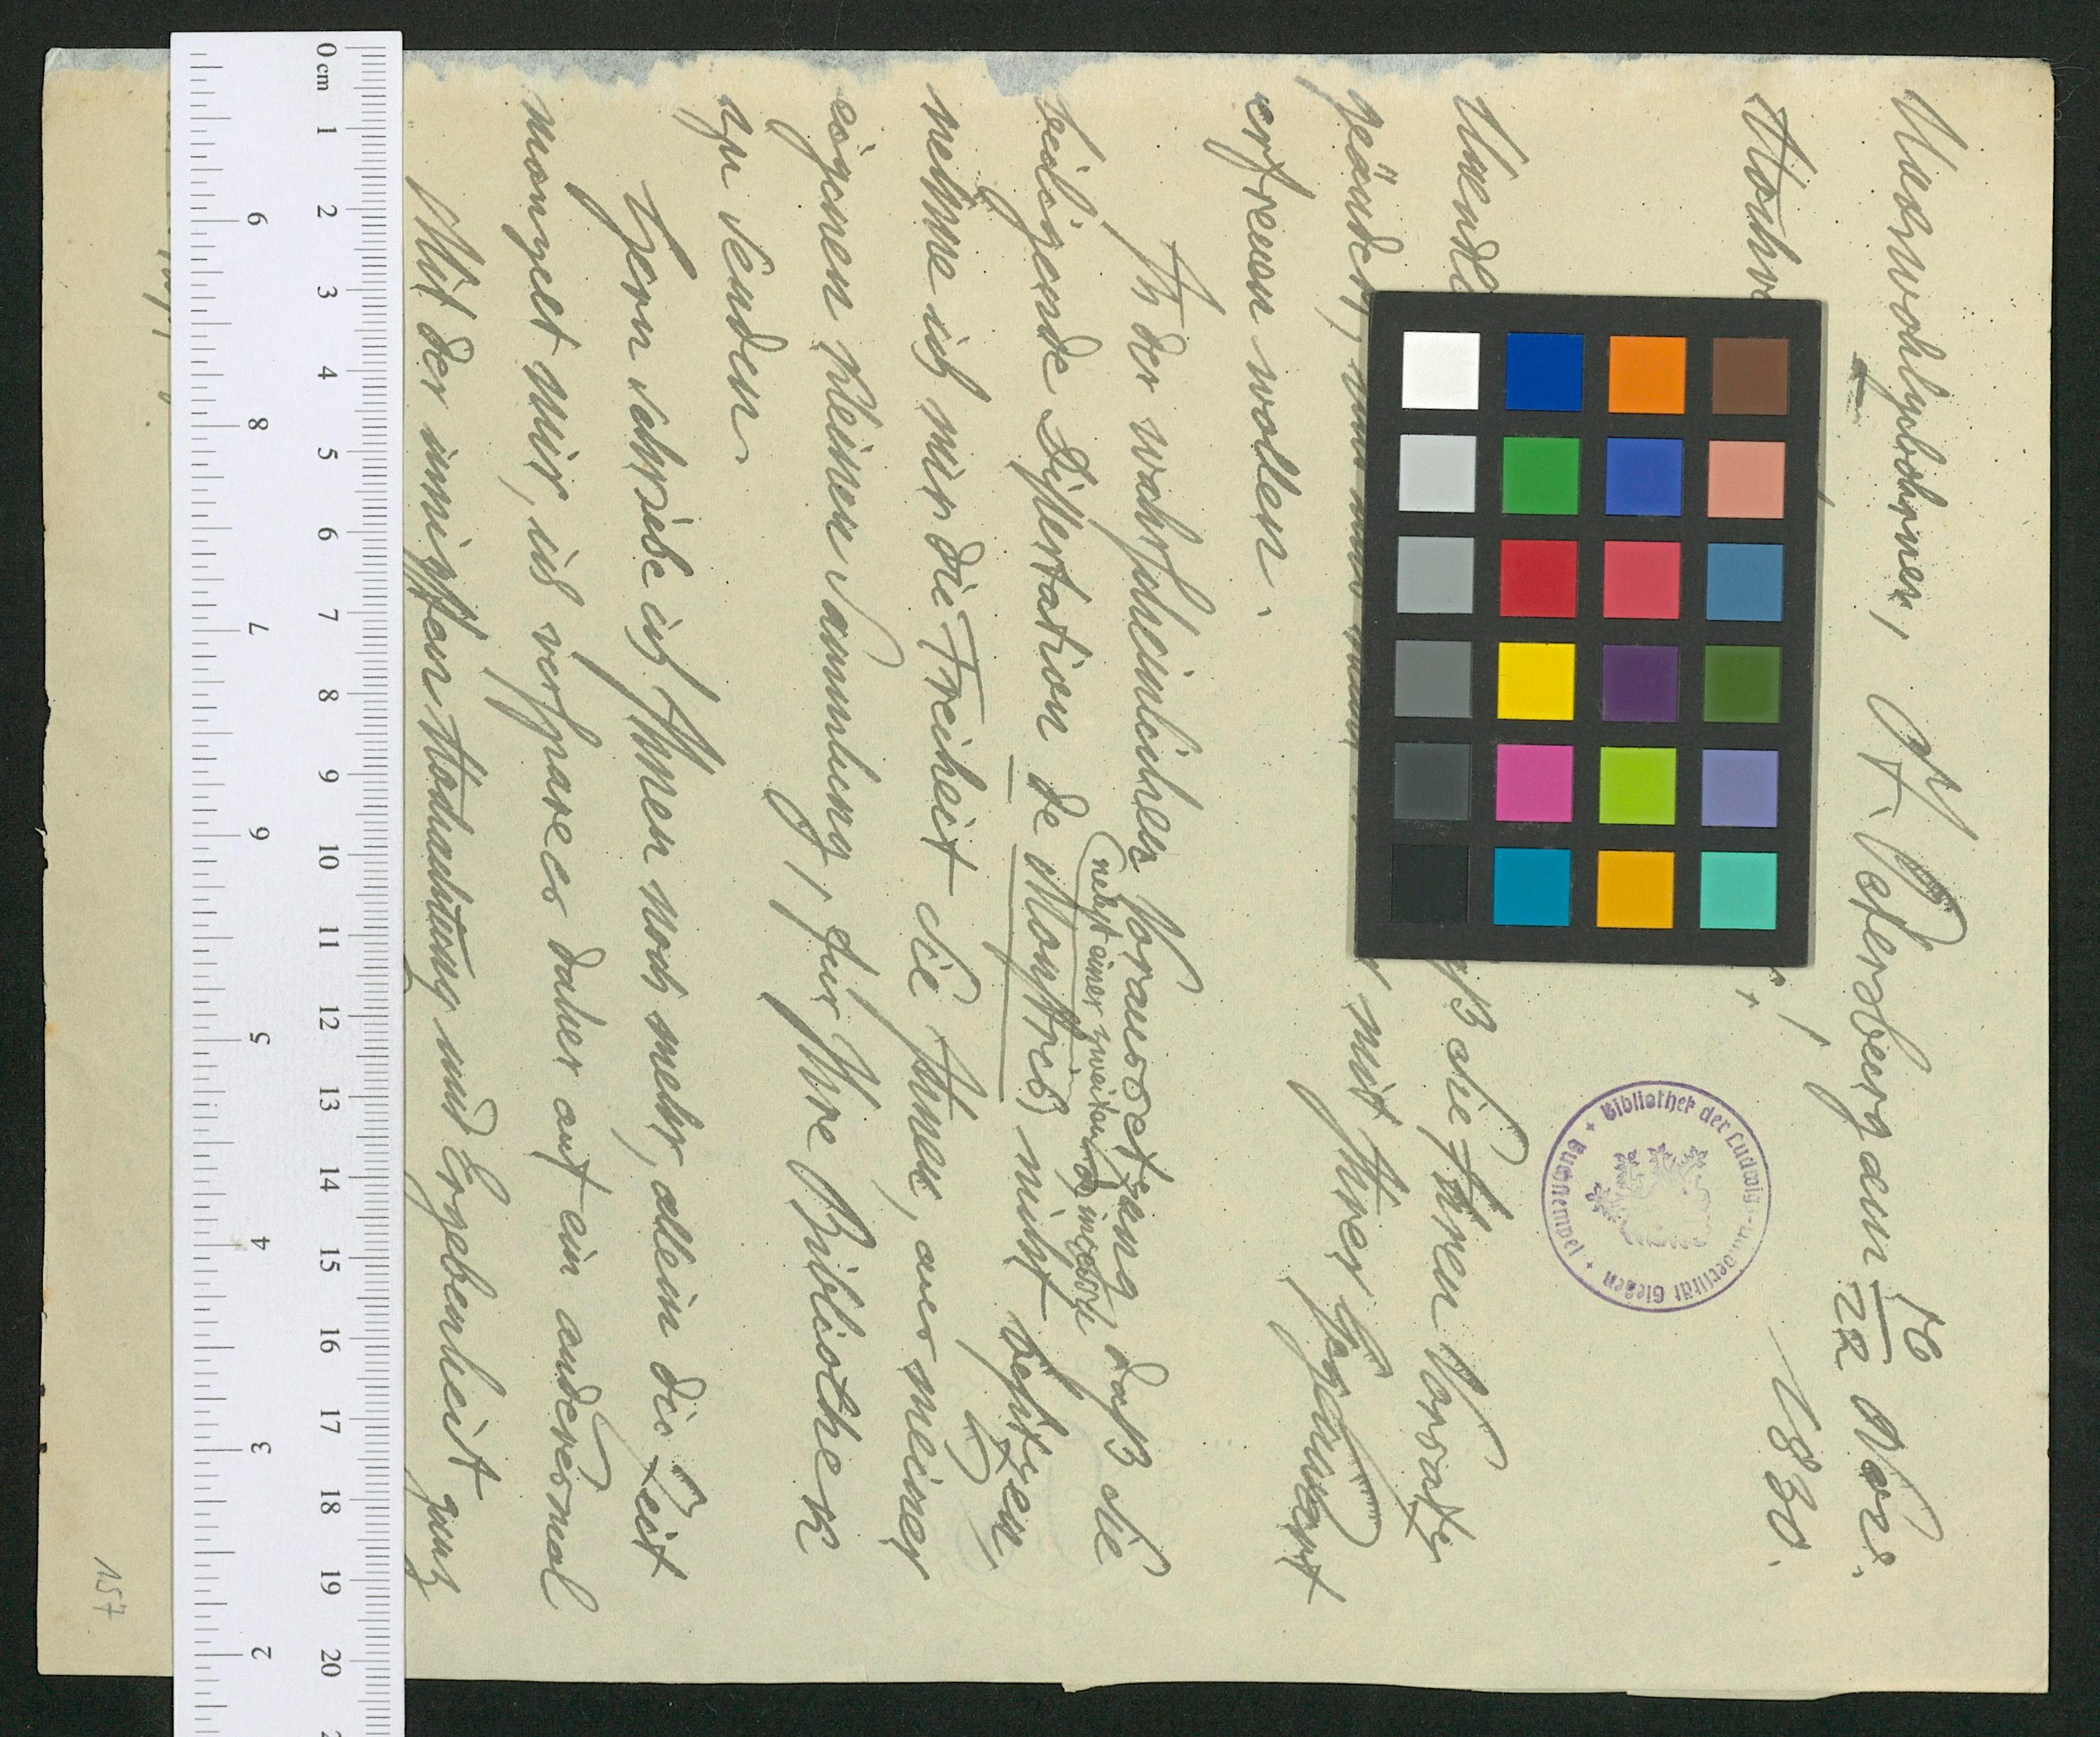 Hochwohlgeborner, St. Petersberg den 10/22 Nov.
1830.
Hochv
Unendl ß die Ihren Vorrathe
geändert, mit Ihrer Gegenwart
erfreuen wollen.
In der wahrscheinlichen Voraussetzung daß die
nebst einer zweiten
beiligende Dissertation de Monstris nicht besitzen,
nehme ich mir die Freiheit sie Ihnen, aus meiner
eigenen kleinen Sammlung, für Ihre Bibliothek
zu senden.
Gern schriebe ich Ihnen noch mehr, allein die Zeit
mangelt mir, ich verspare es daher auf ein anderesmal
Mit der innigsten Hochachtung und Ergebenheit ganz
Bibliothek der Ludwigs-Universität Gießen
157
0 cm 1 2 3 4 5 6 7 8 9 10 11 12 13 14 15 16 17 18 19 20
9 8 7 6 5 4 3 2